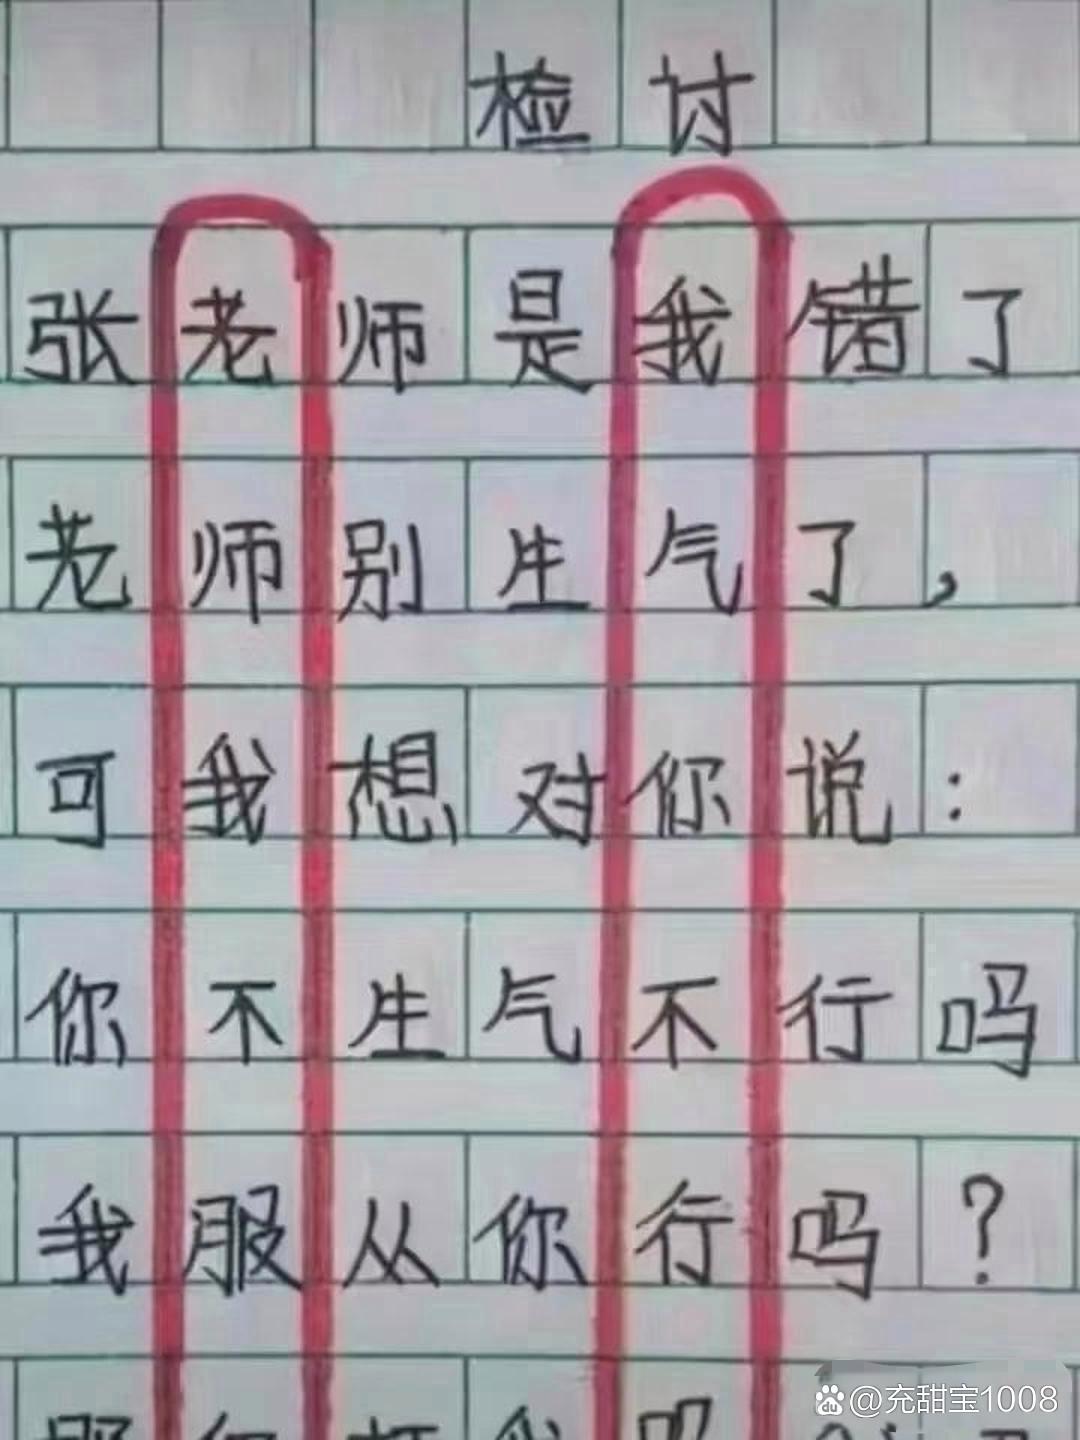 检讨
张老师是我错了
老师别生气了，
可我想对你说：
你不生气不行吗
我服从你行吗？
@充甜宝1008